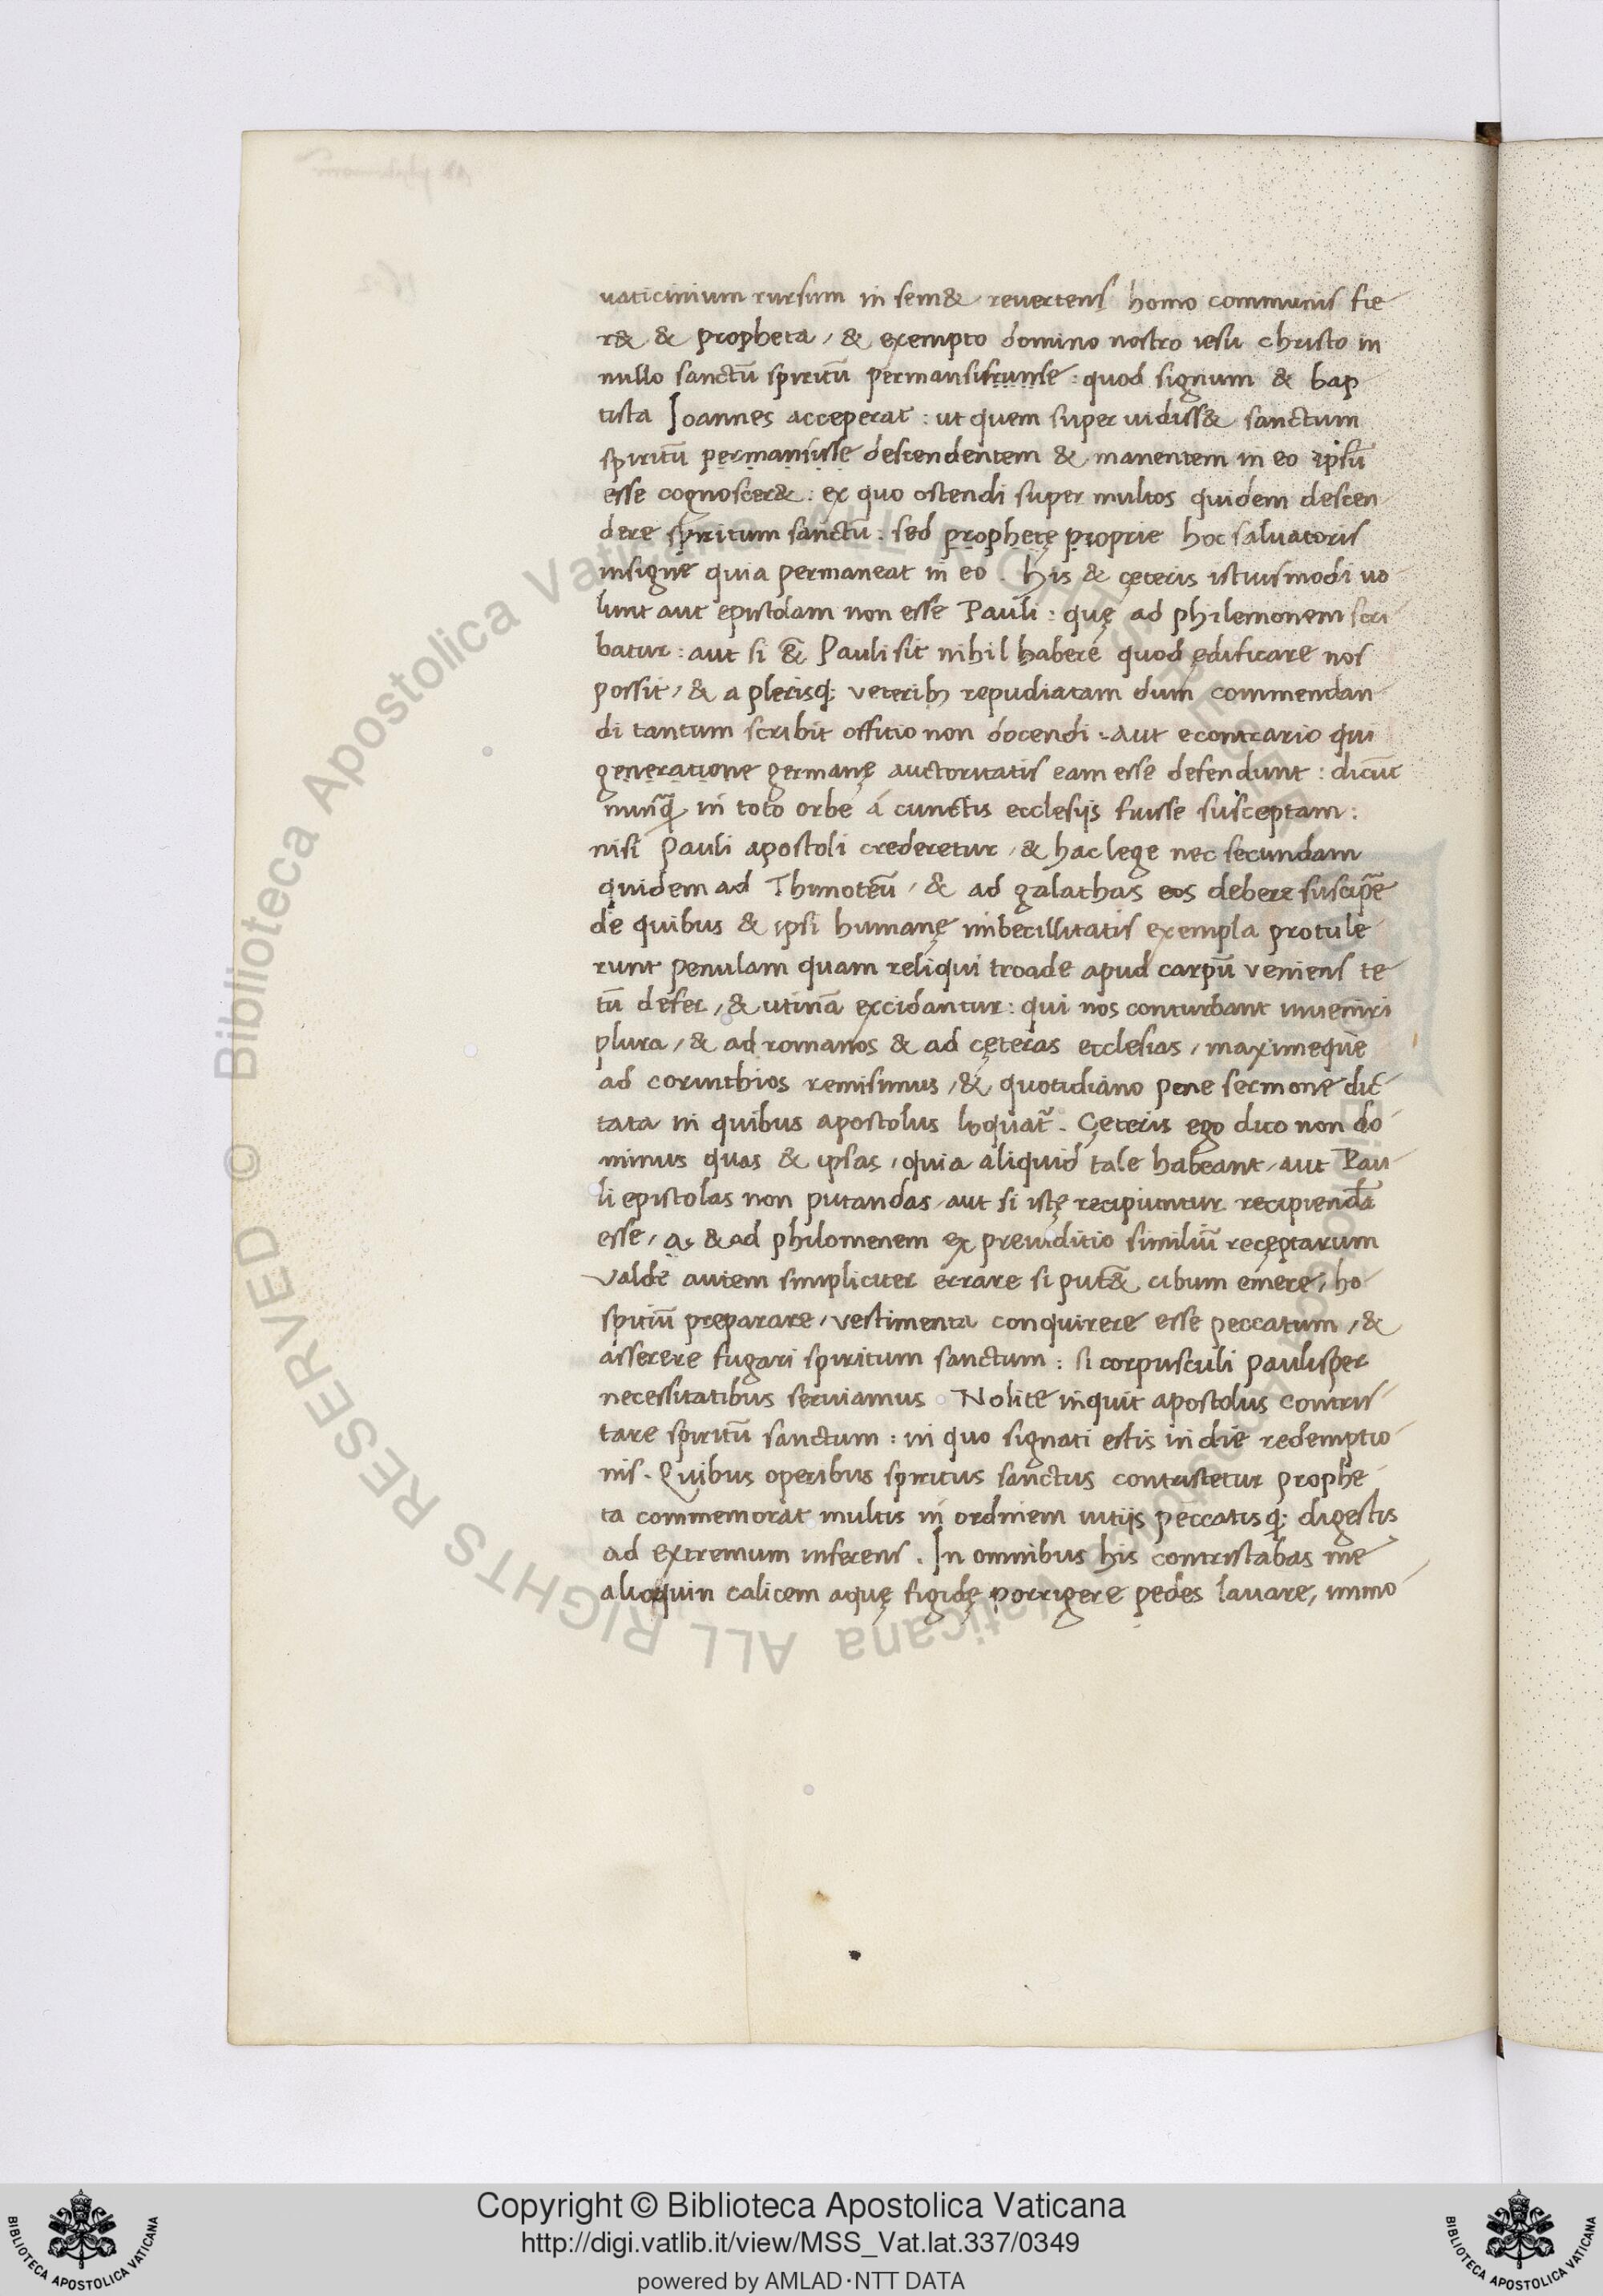 vaticinium rursum in sem& revertens homo communis fie
r& & propheta, & exempto domino nostro iesu christo in
nullo sanctū spiritū : quod signum & bap
tista Joannes acceperat : ut quem super vidiss& sanctum
spiritū permansisse descendentem & manentem in eo ipsū
esse cognoscer& : ex quo ostendi super multos quidem descen
dere spiritum sanctū : sed prophetę proprie hoc salvatoris
insigne quia permaneat in eo . his & cęteris istiusmodi vo
lunt aut epistolam non esse Pauli : quę ad philemonem scri
batur : aut si & Pauli sit nihil habere quod ędificare nos
possit, & a plerisq; veterib; repudiatam dum commendan
di tantum scribit offitio non docendi . Aut econtrario qui
generatione germanę auctoritatis eam esse defendunt : dicūt
nunq̄ in toto orbe á cunctis ecclesijs fuisse susceptam :
nisi Pauli apostoli crederetur, & hac lege nec secundam
quidem ad Thimoteū, & ad galathas eos debere suscipe
de quibus & ipsi humanę imbecillitatis exempla protule
runt penulam quam reliqui troade apud carpū veniens te
tū defer, & utinā excidantur : qui nos conturbant inveniri
plura, & ad romanos & ad cęteras ecclesias, maximeque
ad corinthios remisimus, & quotidiano pene sermone dic
tata in quibus apostolus loquat̄ . Cęteris ego dico non do
minus quas & ipsas, quia aliquid tale habeant, aut Pau
li epistolas non putandas, aut si istę recipiuntur recipiendā
esse, & ad philomenem ex preiuditio similiū receptarum
Valde autem simpliciter errare si put& cibum emere, ho
spitiū preparare, vestimenta conquirere esse peccatum, &
asserere fugari spiritum sanctum : si corpusculi paulisper
necessitatibus serviamus Nolite inquit apostolus contris
tare spiritū sanctum : in quo signati estis in die redemptio
nis . Quibus operibus spiritus sanctus contristetur prophe
ta commemorat multis in ordinem vitijs peccatisq; digestis
ad extremum inferens . In omnibus his contristabas me
alioquin calicem aquę figidę porrigere pedes lavare, immo
© Biblioteca Apostolica Vaticana ALL RIGHTS RESERVED
Copyright © Biblioteca Apostolica Vaticana
http://digi.vatlib.it/view/MSS_Vat.lat.337/0349
powered by AMLAD·NTT DATA
BIBLIOTECA APOSTOLICA VATICANA
BIBLIOTECA APOSTOLICA VATICANA